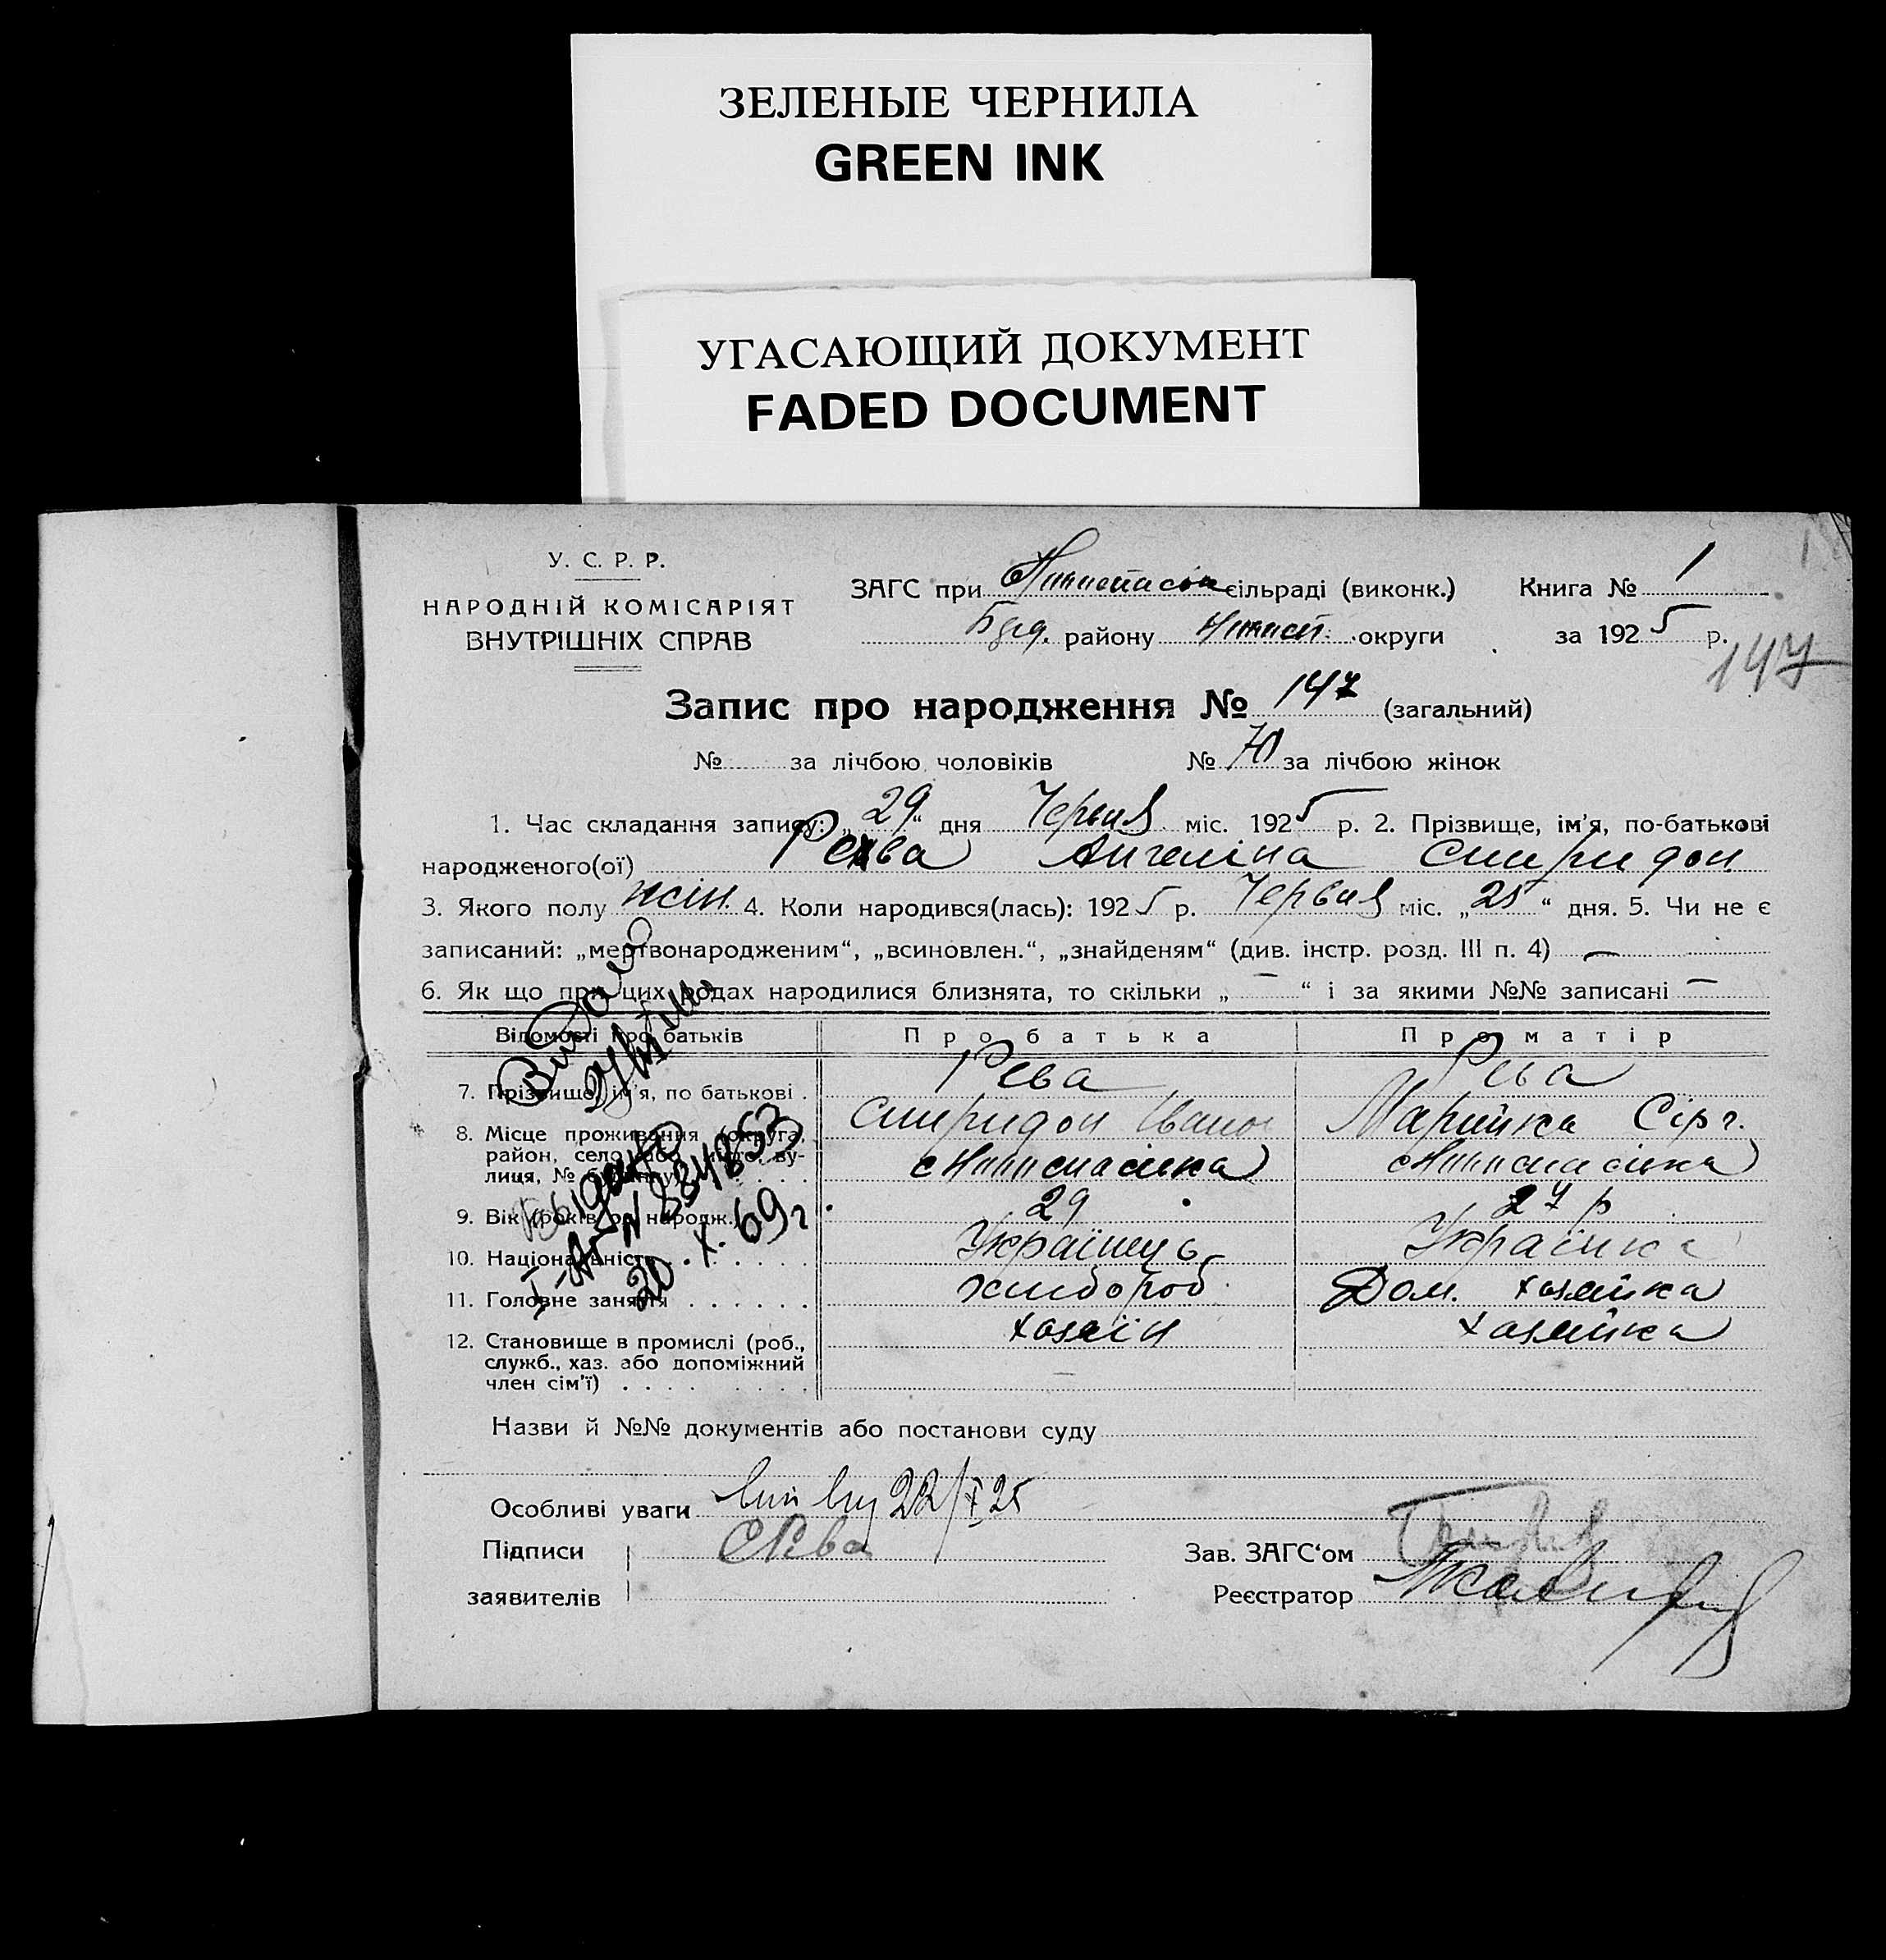 ЗЕЛЕНЫЕ ЧЕРНИЛА
GREEN INK
УГАСАЮЩИЙ ДОКУМЕНТ
FADED DOCUMENT
У. С. Р. Р.
НАРОДНІЙ КОМІСАРІЯТ
ВНУТРІШНІХ СПРАВ
ЗАГС при сільраді (виконк.) Книга № 1
району округи за 1925 р.
147
Запис про народження № 147 (загальний)
№ за лічбою чоловіків № 70 за лічбою жінок
1. Час складання запису: „29“ дня Червня міс. 1925 р. 2. Прізвище, ім'я, по-батькові
народженого(ої) Рева Ангеліна Спиридон
3. Якого полу жін. 4. Коли народився(лась): 1925 р. Червня міс. „25“ дня. 5. Чи не є
записаний: „мертвонародженим“, „всиновлен.“, „знайденям“ (див. інстр. розд. III п. 4) —
6. Як що при цих родах народилися близнята, то скільки „—“ і за якими №№ записані —
Відомості про батьків Про батька Про матір
7. Прізвище, ім'я, по батькові . Рева Рева
Спиридон Іванов Марийка Сірг.
8. Місце проживання (округа, район, село або місто, вулиця, № будинку)
9. Вік (років од народж.) 29 27 р
10. Національність Українець Українка
11. Головне заняття хлібороб. Дом. хозяйка
12. Становище в промислі (роб., служб., хаз. або допоміжний член сім'ї) хозяїн хозяйка
Выдано
I-АГ № 334853
20. X. 69 г.
Назви й №№ документів або постанови суду
Особливі уваги 22/X 25
Підписи С Рева Зав. ЗАГС'ом
заявителів Реєстратор